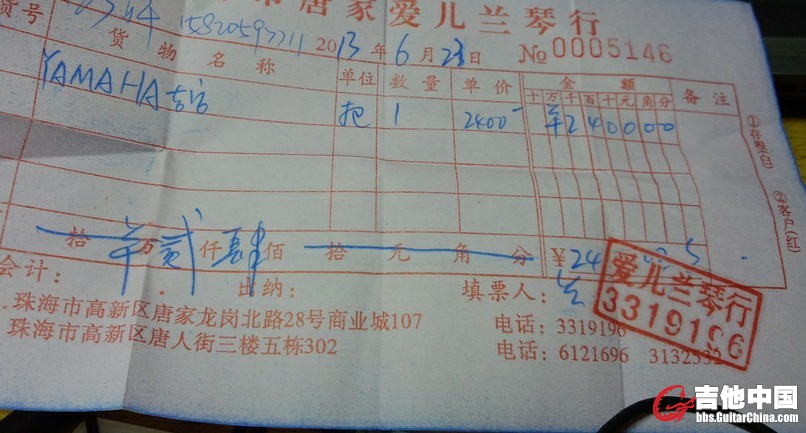 唐家爱儿兰琴行
货号 15820597711 2013年6月23日 No 0005146
货物名称 单位 数量 单价 金额 备注
十万千百十元角分
YAMAHA吉它 把 1 2400- ¥240000
①存根(白)
②客户(红)
拾万贰仟肆佰拾元角分 ¥24
会计: 出纳: 填票人:
爱儿兰琴行
3319196
珠海市高新区唐家龙岗北路28号商业城107 电话: 3319196
珠海市高新区唐人街三楼五栋302 电话: 6121696
吉他中国
bbs.GuitarChina.com